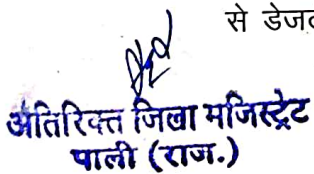 से
अतिरिक्त जिला मजिस्ट्रेट
पाली (राज.)